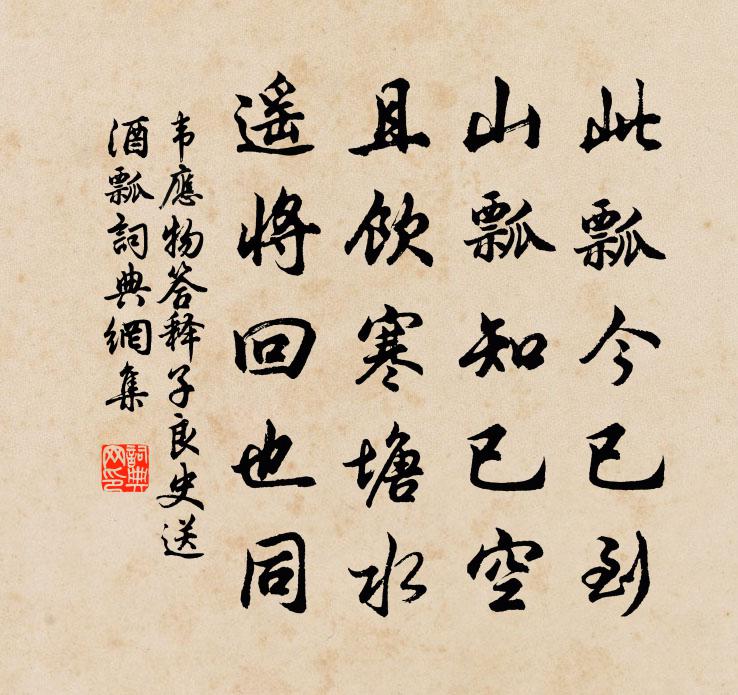 此瓢今已到
山瓢知已空
且饮寒塘水
遥将回也同
韦應物答释子良史送
酒瓢詞典網集
詞典网印